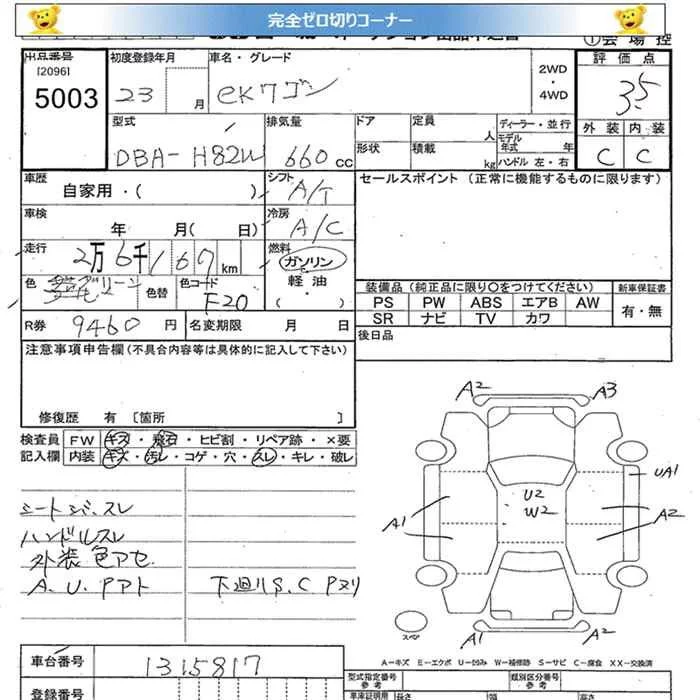 完全ゼロ切りコーナー
①会場控
出品番号
[2096]
5003
初度登録年月
23 月
車名・グレード
eKワゴン
2WD
・
4WD
評価点
3.5
外装 内装
C C
型式
DBA-H82W
排気量
660 cc
ドア
定員
人
ディーラー・並行
モデル年式 年
形状
積載
kg
ハンドル 左・右
車歴
自家用・( )
シフト
A/T
セールスポイント (正常に機能するものに限ります)
車検
年 月( 日)
冷房
A/C
走行
2万6千167km
燃料
ガソリン
軽油
・( )
色
色替
色コード
F20
装備品(純正品に限り○をつけてください)
新車保証書
PS PW ABS エアB AW
SR ナビ TV カワ
有・無
R券 9460円
名変期限 月 日
後日品
注意事項申告欄(不具合内容等は具体的に記入して下さい)
修復歴 有 [箇所 ]
検査員 FW キズ・飛石・ヒビ割・リペア跡・×要
記入欄 内装 キズ・汚レ・コゲ・穴・スレ・キレ・破レ
シートシミ、スレ
ハンドルスレ
外装色アセ
A.U.Pアト
下廻りS.C Pヌリ
A2 A3
UA1
U2
W2
A1 A2
スペア
A1 A2
A-キズ E-エクボ U-凹み W-補修跡 S-サビ C-腐食 XX-交換済
車台番号
1315817
登録番号
型式指定番号
参考
類別区分番号
参考
車車証明用
長さ
幅
高さ